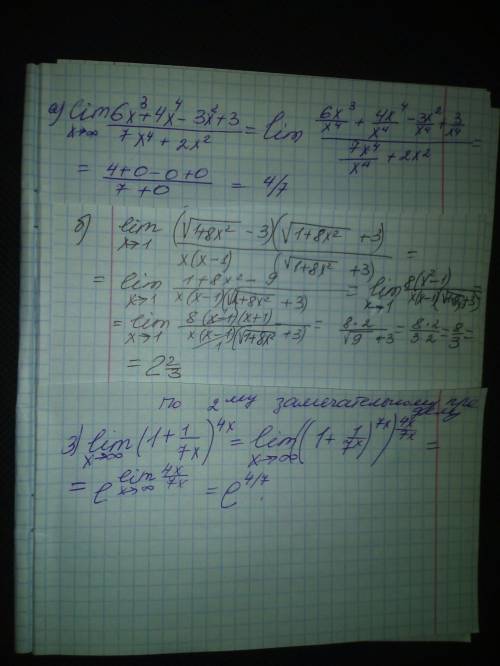 а) lim x→∞ (6x³+4x⁴-3x²+3)/(7x⁴+2x²) = lim (6x³/x⁴ + 4x⁴/x⁴ - 3x²/x⁴ + 3/x⁴)/(7x⁴/x⁴ + 2x²) =
= (4+0-0+0)/(7+0) = 4/7
б) lim x→1 (√1+8x² - 3)(√1+8x² + 3)/(x(x-1) (√1+8x² + 3)) =
= lim x→1 (1+8x²-9)/(x(x-1)(√1+8x² + 3)) = lim x→1 8(x²-1)/(x(x-1)(√1+8x²+3)) =
= lim x→1 8(x-1)(x+1)/(x(x-1)(√1+8x² + 3)) = 8·2/(√9 + 3) = 8·2/(3·2) = 8/3 =
= 2 2/3
по 2му замечательному пределу
3) lim x→∞ (1+1/7x)^4x = lim x→∞ ((1+1/7x)^7x)^4x/7x =
= e^lim x→∞ 4x/7x = e^4/7.